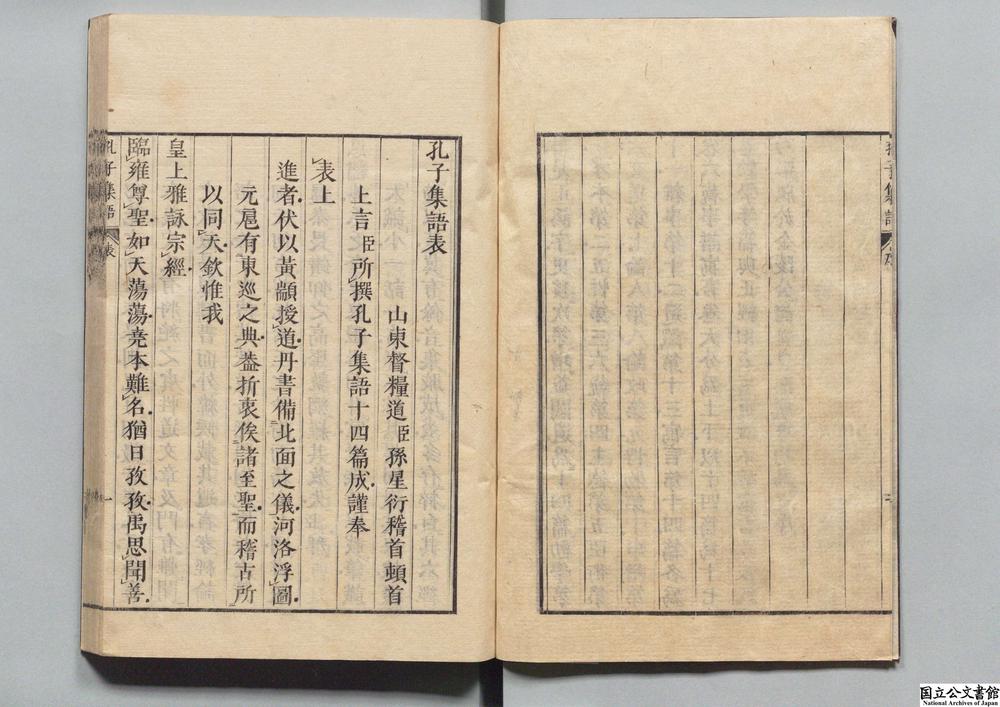 孔子集語表
山東督糧道臣孫星衍稽首頓首
上言臣所撰孔子集語十四篇成謹奉
表上
進者伏以黃顓授道丹書備北面之儀河洛浮圖
元扈有東巡之典葢折衷俟諸至聖而稽古所
以同天欽惟我
皇上雅詠宗經
臨雍尊聖如天蕩蕩堯本難名猶日孜孜禹思聞善
孔子集語 表 一
子集語
国立公文書館
National Archives of Japan